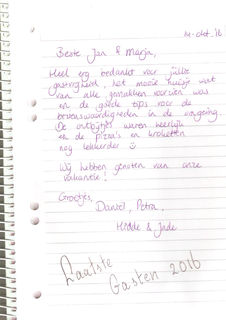 14-okt. '16
Beste Jan & Marja,
Heel erg bedankt voor jullie
gastvrijheid, het mooie huisje wat
van alle gemakken voorzien was
en de goede tips voor de
bezienswaardigheden in de omgeving.
De ontbijtjes waren heerlijk
en de pizza's en kroketten
nog lekkerder
Wij hebben genoten van onze
vakantie!
Groetjes,
Daniel, Petra,
& Jade
Laatste
Gasten 2016